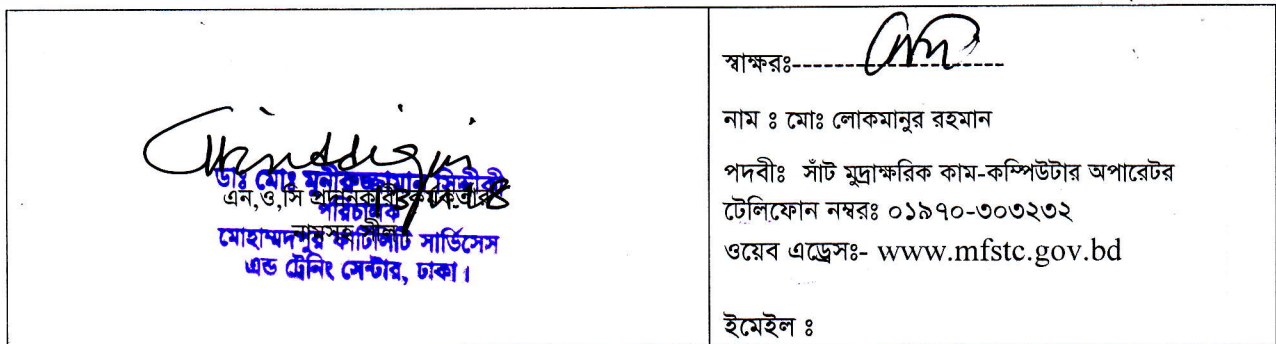 ডাঃ মোঃ মুনীরুজ্জামান সিদ্দীকী
এন,ও,সি প্রদানকারী কর্মকর্তার
পরিচালক
নামসহ সীল
মোহাম্মদপুর ফার্টিলিটি সার্ভিসেস
এন্ড ট্রেনিং সেন্টার, ঢাকা।
স্বাক্ষরঃ-----------------------
নাম ঃ মোঃ লোকমানুর রহমান
পদবীঃ সাঁট মুদ্রাক্ষরিক কাম-কম্পিউটার অপারেটর
টেলিফোন নম্বরঃ ০১৯৭০-৩০৩২৩২
ওয়েব এড্রেসঃ- www.mfstc.gov.bd
ইমেইল ঃ